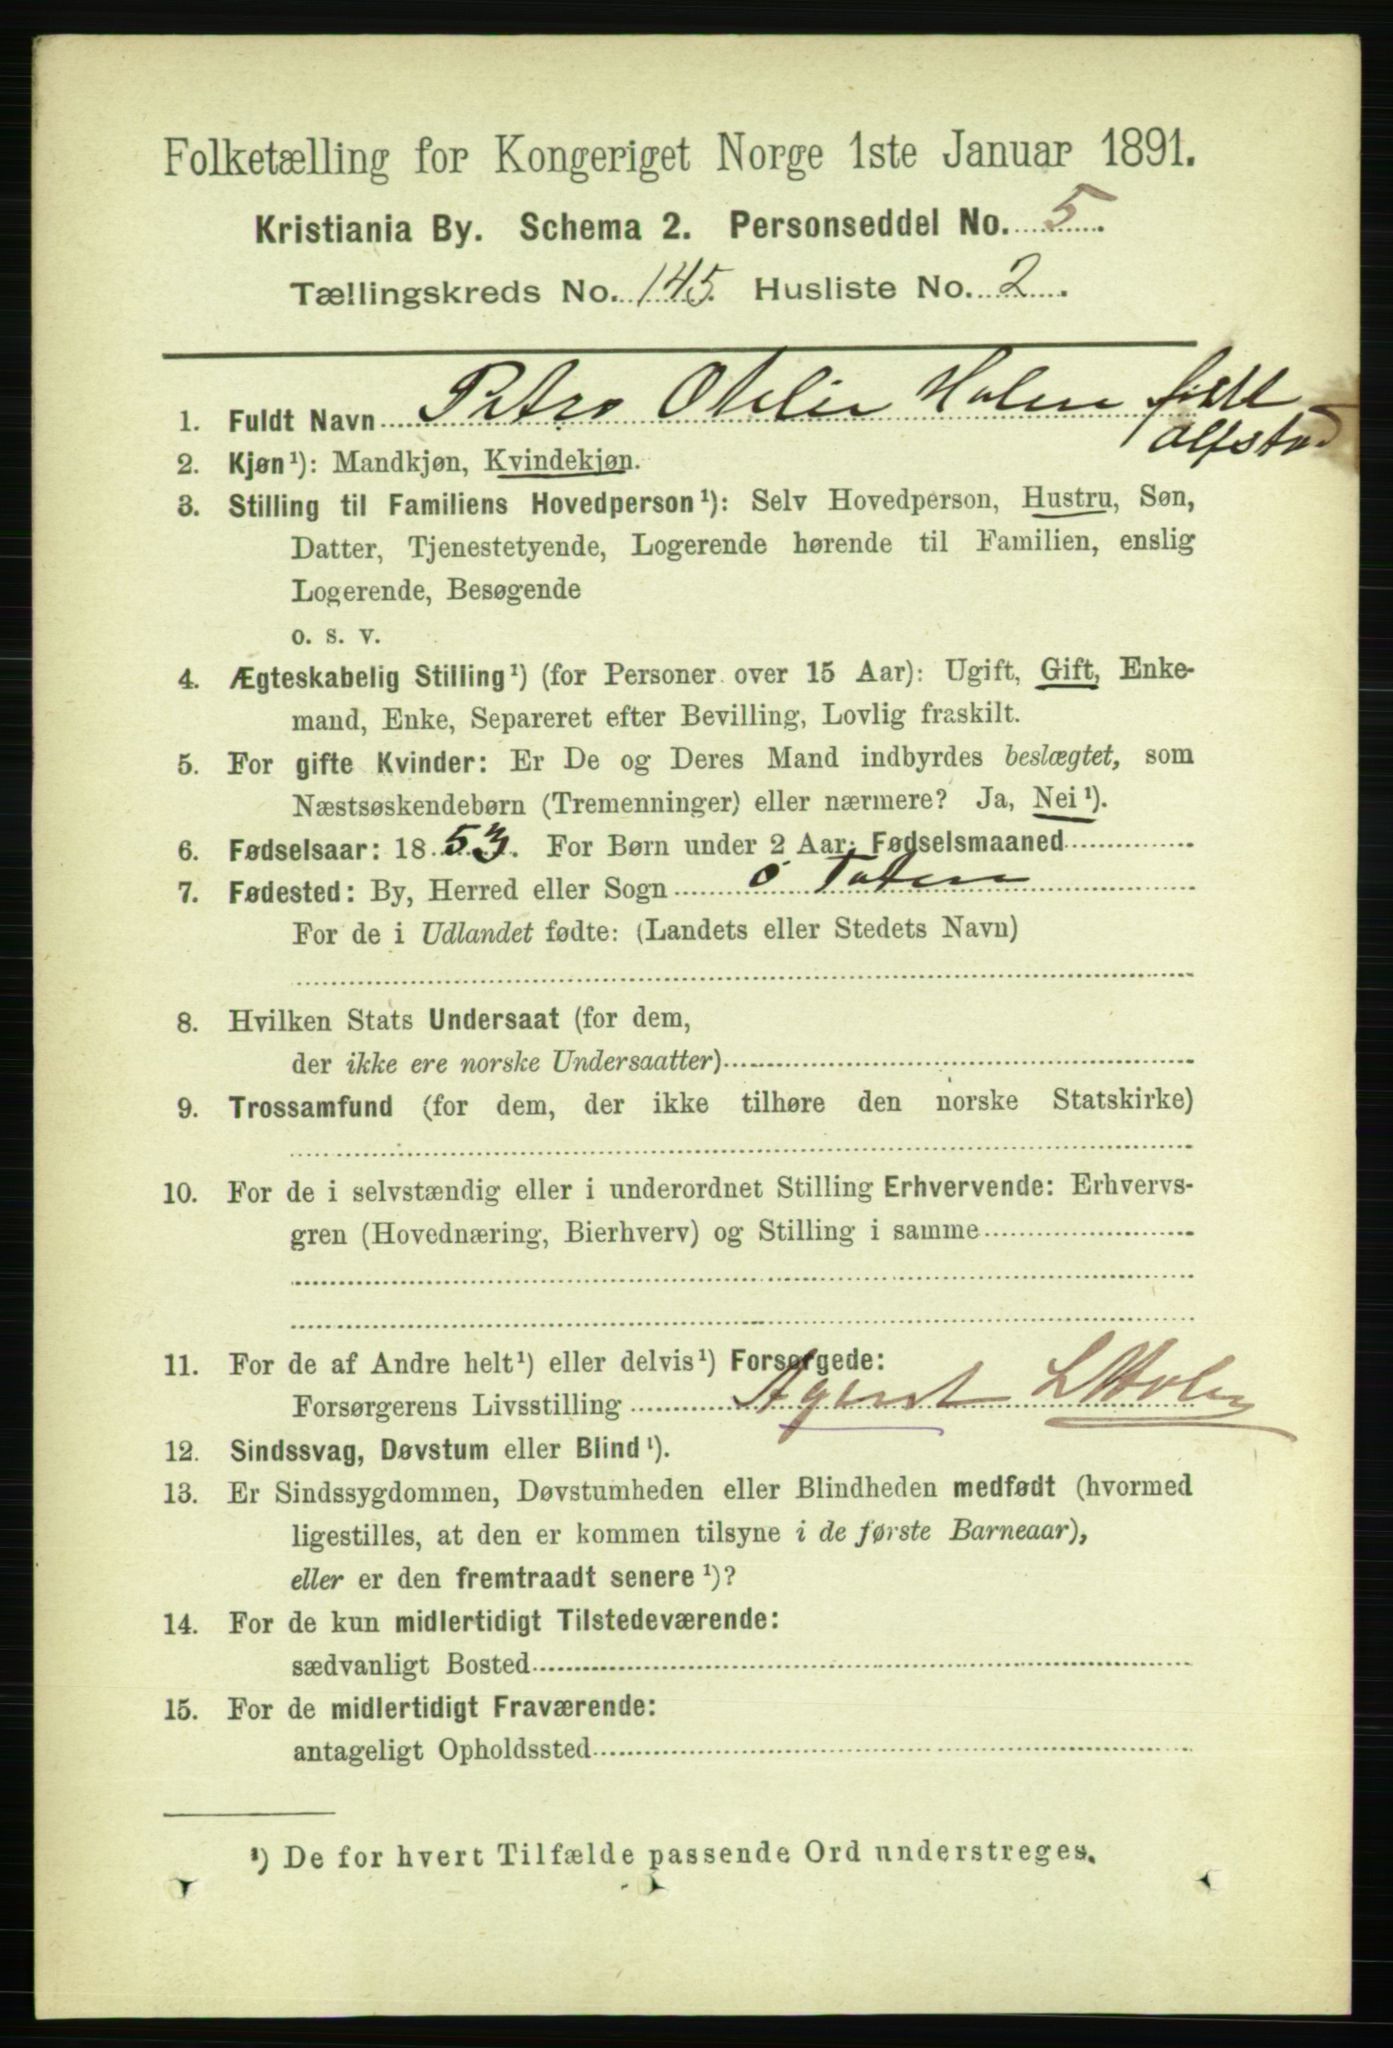 Folketælling for Kongeriget Norge 1ste Januar 1891.
Kristiania By. Schema 2. Personseddel No. 5.
Tællingskreds No. 145. Husliste No. 2.
1. Fuldt Navn Petra Otelie Holen født
Alfstad
2. Kjøn¹): Mandkjøn, Kvindekjøn.
3. Stilling til Familiens Hovedperson¹): Selv Hovedperson, Hustru, Søn,
Datter, Tjenestetyende, Logerende hørende til Familien, enslig
Logerende, Besøgende
o. s. v.
4. Ægteskabelig Stilling¹) (for Personer over 15 Aar): Ugift, Gift, Enke-
mand, Enke, Separeret efter Bevilling, Lovlig fraskilt.
5. For gifte Kvinder: Er De og Deres Mand indbyrdes beslægtet, som
Næstsøskendebørn (Tremenninger) eller nærmere? Ja, Nei¹).
6. Fødselsaar: 1853. For Børn under 2 Aar: Fødselsmaaned
7. Fødested: By, Herred eller Sogn Ö Toten
For de i Udlandet fødte: (Landets eller Stedets Navn)
8. Hvilken Stats Undersaat (for dem,
der ikke ere norske Undersaatter)
9. Trossamfund (for dem, der ikke tilhøre den norske Statskirke)
10. For de i selvstændig eller i underordnet Stilling Erhvervende: Erhvervs-
gren (Hovednæring, Bierhverv) og Stilling i samme
11. For de af Andre helt¹) eller delvis¹) Forsørgede:
Forsørgerens Livsstilling Agent L Holen
12. Sindssvag, Døvstum eller Blind¹).
13. Er Sindssygdommen, Døvstumheden eller Blindheden medfødt (hvormed
ligestilles, at den er kommen tilsyne i de første Barneaar),
eller er den fremtraadt senere¹)?
14. For de kun midlertidigt Tilstedeværende:
sædvanligt Bosted
15. For de midlertidigt Fraværende:
antageligt Opholdssted
¹) De for hvert Tilfælde passende Ord understreges.